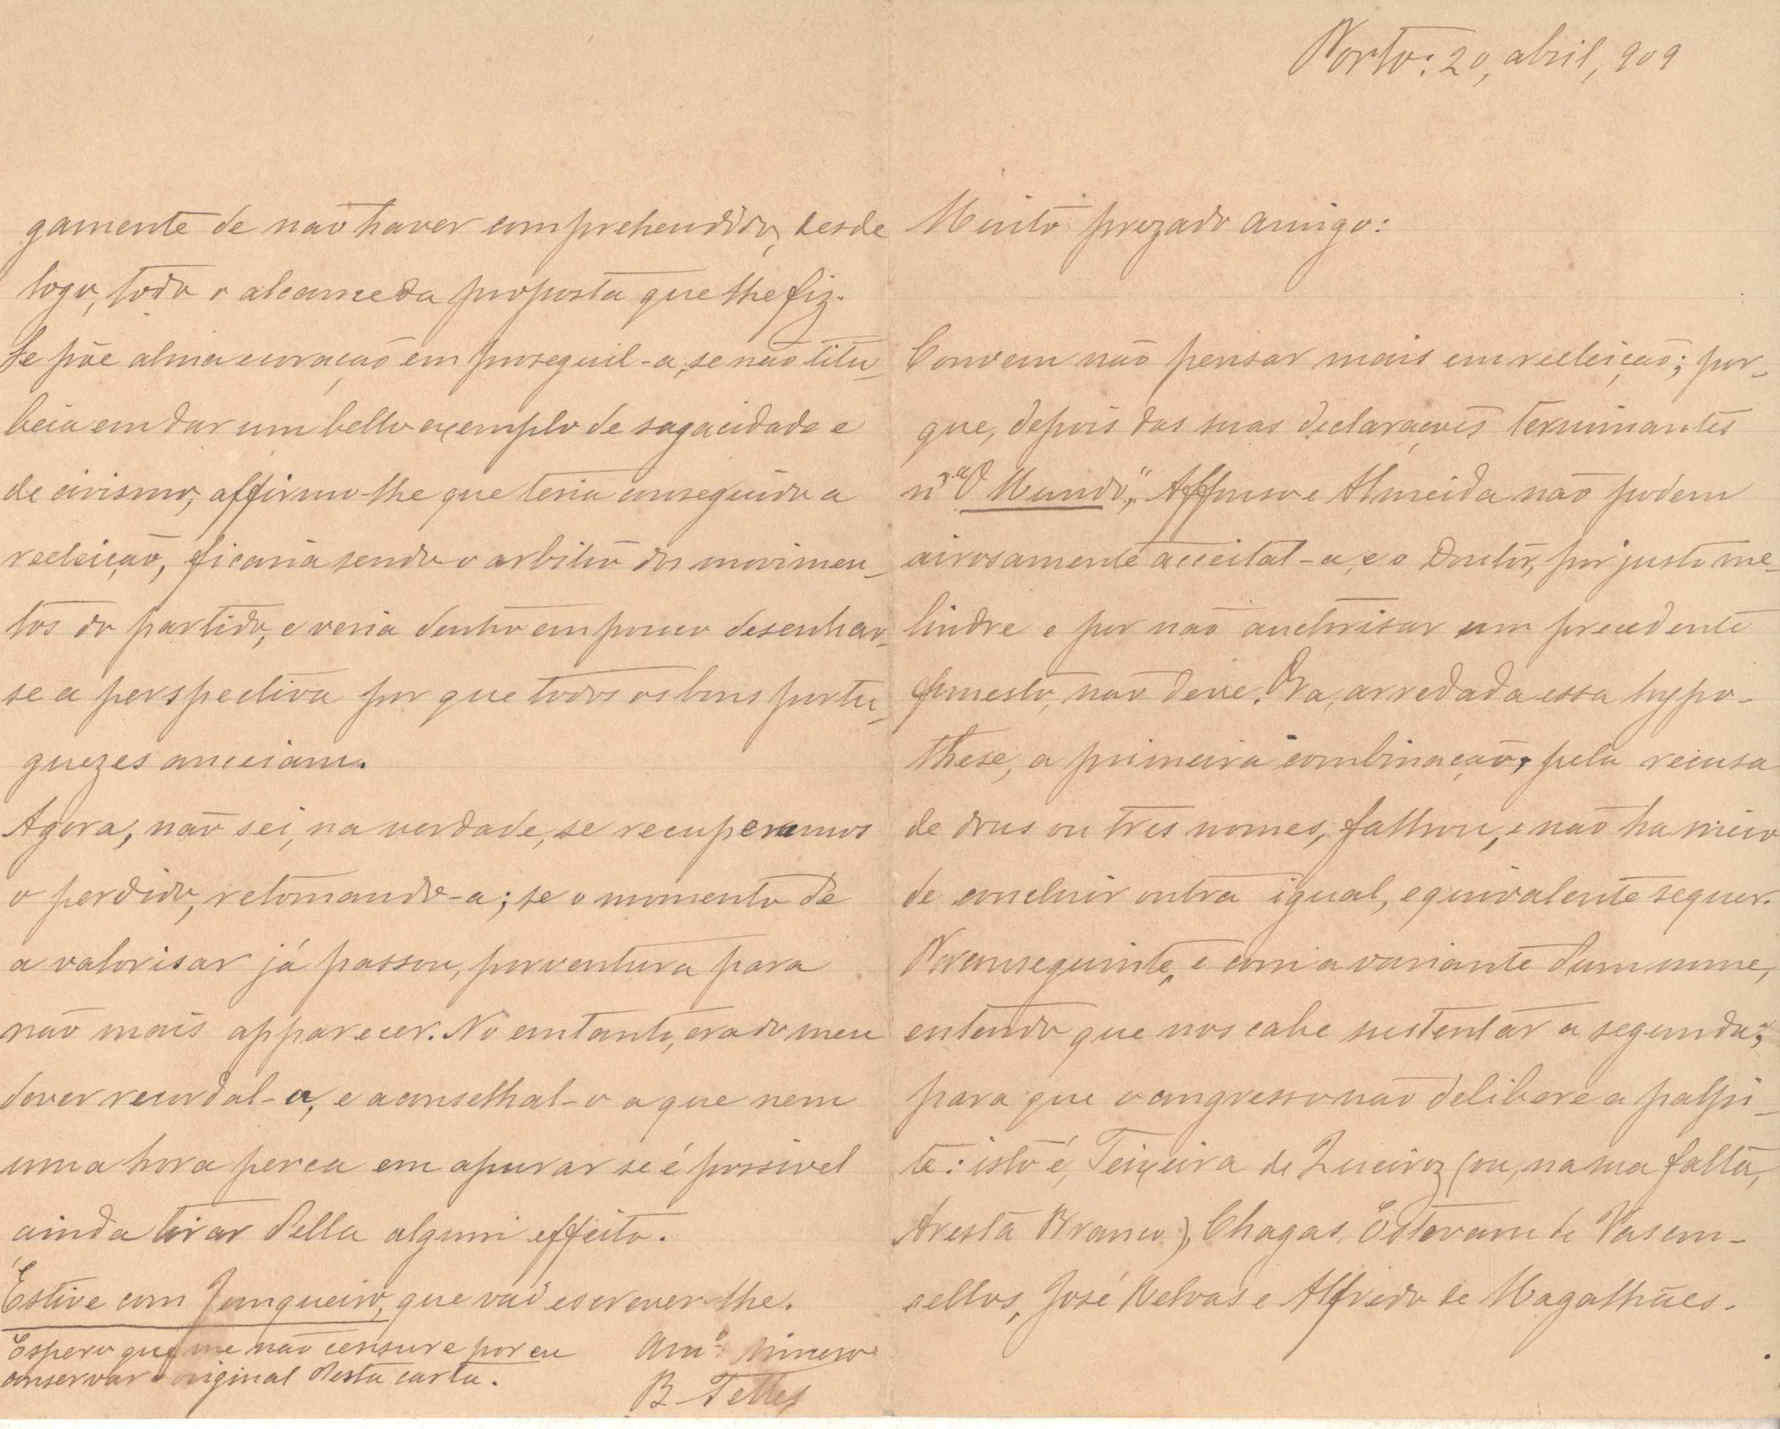 Porto: 20, abril, 909
Muito prezado amigo:
Convem não pensar mais em reeleição; por-
que, depois das suas declarações terminantes
n'"O Mundo", Affonso e Almeida não podem
airosamente acceital-a, e o Doutor, por justo me-
lindre e por não auctorisar um precedente
funesto, não deve. Ora, arredada essa hypo-
these, a primeira combinação, pela recusa
de dous ou tres nomes, falhou, e não ha meio
de concluir outra igual, equivalente sequer.
Por conseguinte, e com a variante dum nome,
entendo que nos cabe sustentar a segunda;
para que o congresso não delibere a palpi-
te: isto é, Teixeira de Queiroz (ou, na sua falta,
Aresta Branco), Chagas, Estevam de Vascon-
cellos, José Relvas e Alfredo de Magalhães.
gamente de não haver comprehendido, desde
logo, todo o alcance da proposta que lhe fiz.
Se põe alma e coração em proseguil-a, se não titu-
beia em dar um bello exemplo de sagacidade e
de civismo, affirmo-lhe que teria conseguido a
reeleição, ficaria sendo o arbitro dos movimen-
tos do partido, e veria dentro em pouco desenhar-
se a perspectiva por que todos os bons portu-
guezes anceiam.
Agora, não sei, na verdade, se recuperamos
o perdido, retomando-a; se o momento de
a valorisar já passou, porventura para
não mais apparecer. No emtanto, era do meu
dever recordal-a, e aconselhal-o a que nem
uma hora perca em apurar se é possivel
ainda tirar della algum effeito.
Estive com Junqueiro, que vai escrever-lhe.
Espero que me não censure por eu
conservar o original desta carta.
Amº sincero
B. Telles